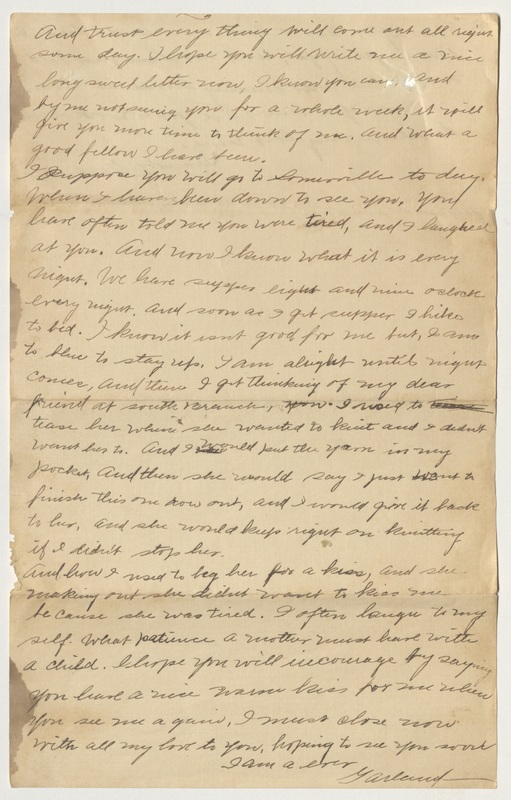 And trust every thing will come out all right
some day. I hope you will write me a nice
long sweet letter now, I know you can, and
by me not seeing you for a whole week, it will
give you more time to think of me. And what a
good fellow I have been.
I suppose you will go to Somerville to day.
When I have been down to see you. You
have often told me you were tired, and I laughed
at you. And now I know what it is every
night. We have supper eight and nine oclock
every night. And soon as I get supper I hike
to bed. I know it isnt good for me but, I am
to blue to stay up. I am alright until night
comes, and then I get thinking of my dear
friend at south Branch, how I used to
tease her when she wanted to knit and I didn't
want her to. And I would put the yarn in my
pocket, And then she would say I just want to
finish this one row out, and I would give it back
to her, and she would keep right on knitting
if I didn't stop her.
And how I used to beg her for a kiss, and she
making out she didnt want to kiss me
be cause she was tired. I often laugh to my
self. What patience a mother must have with
a child. I hope you will incourage by saying
you have a nice warm kiss for me when
you see me again, I must close now
with all my love to you, hoping to see you soon
I am a ever
Garland